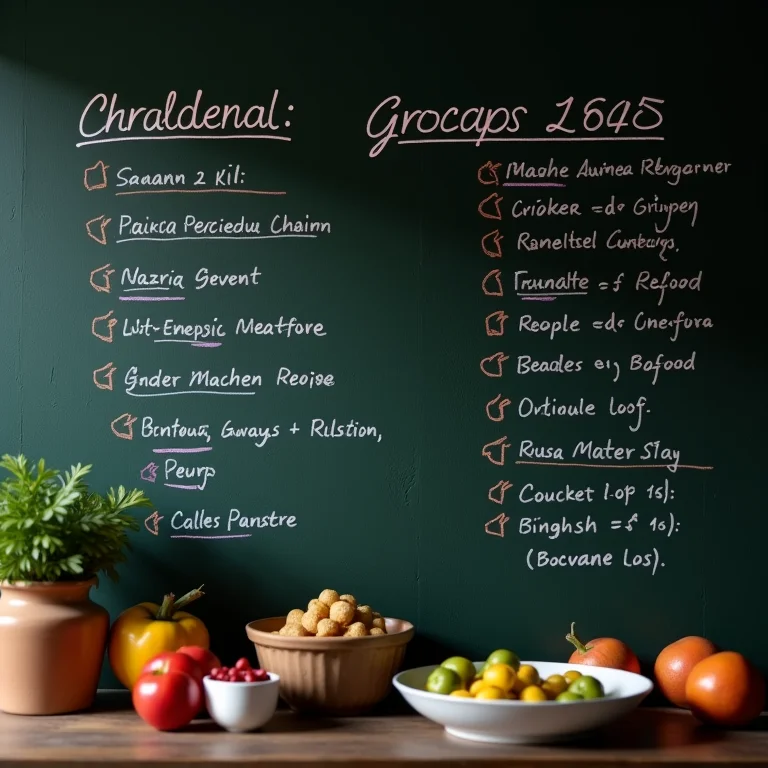 Chraldenal:
Saaann 2 Kil:
Paikca Perciedu Chainn
Nazria Gevent
Lut-Enepsic Meatfore
Gnder Machen Reoise
Bentouz, Gways + Rulstion,
Peurp
Calles Panstre
Grocaps 1645
Mashe Auinea Rbrgarner
Crioker = de Gringen
Raneltsel
Trunalte = f Refood
Reople = de Cneefura
Beadles e1, Bofood
Ortioule Loof.
Rusa Mater Slay
Coucket l-op 1s):
Binghsh = f 1s):
(Bocvane Los).